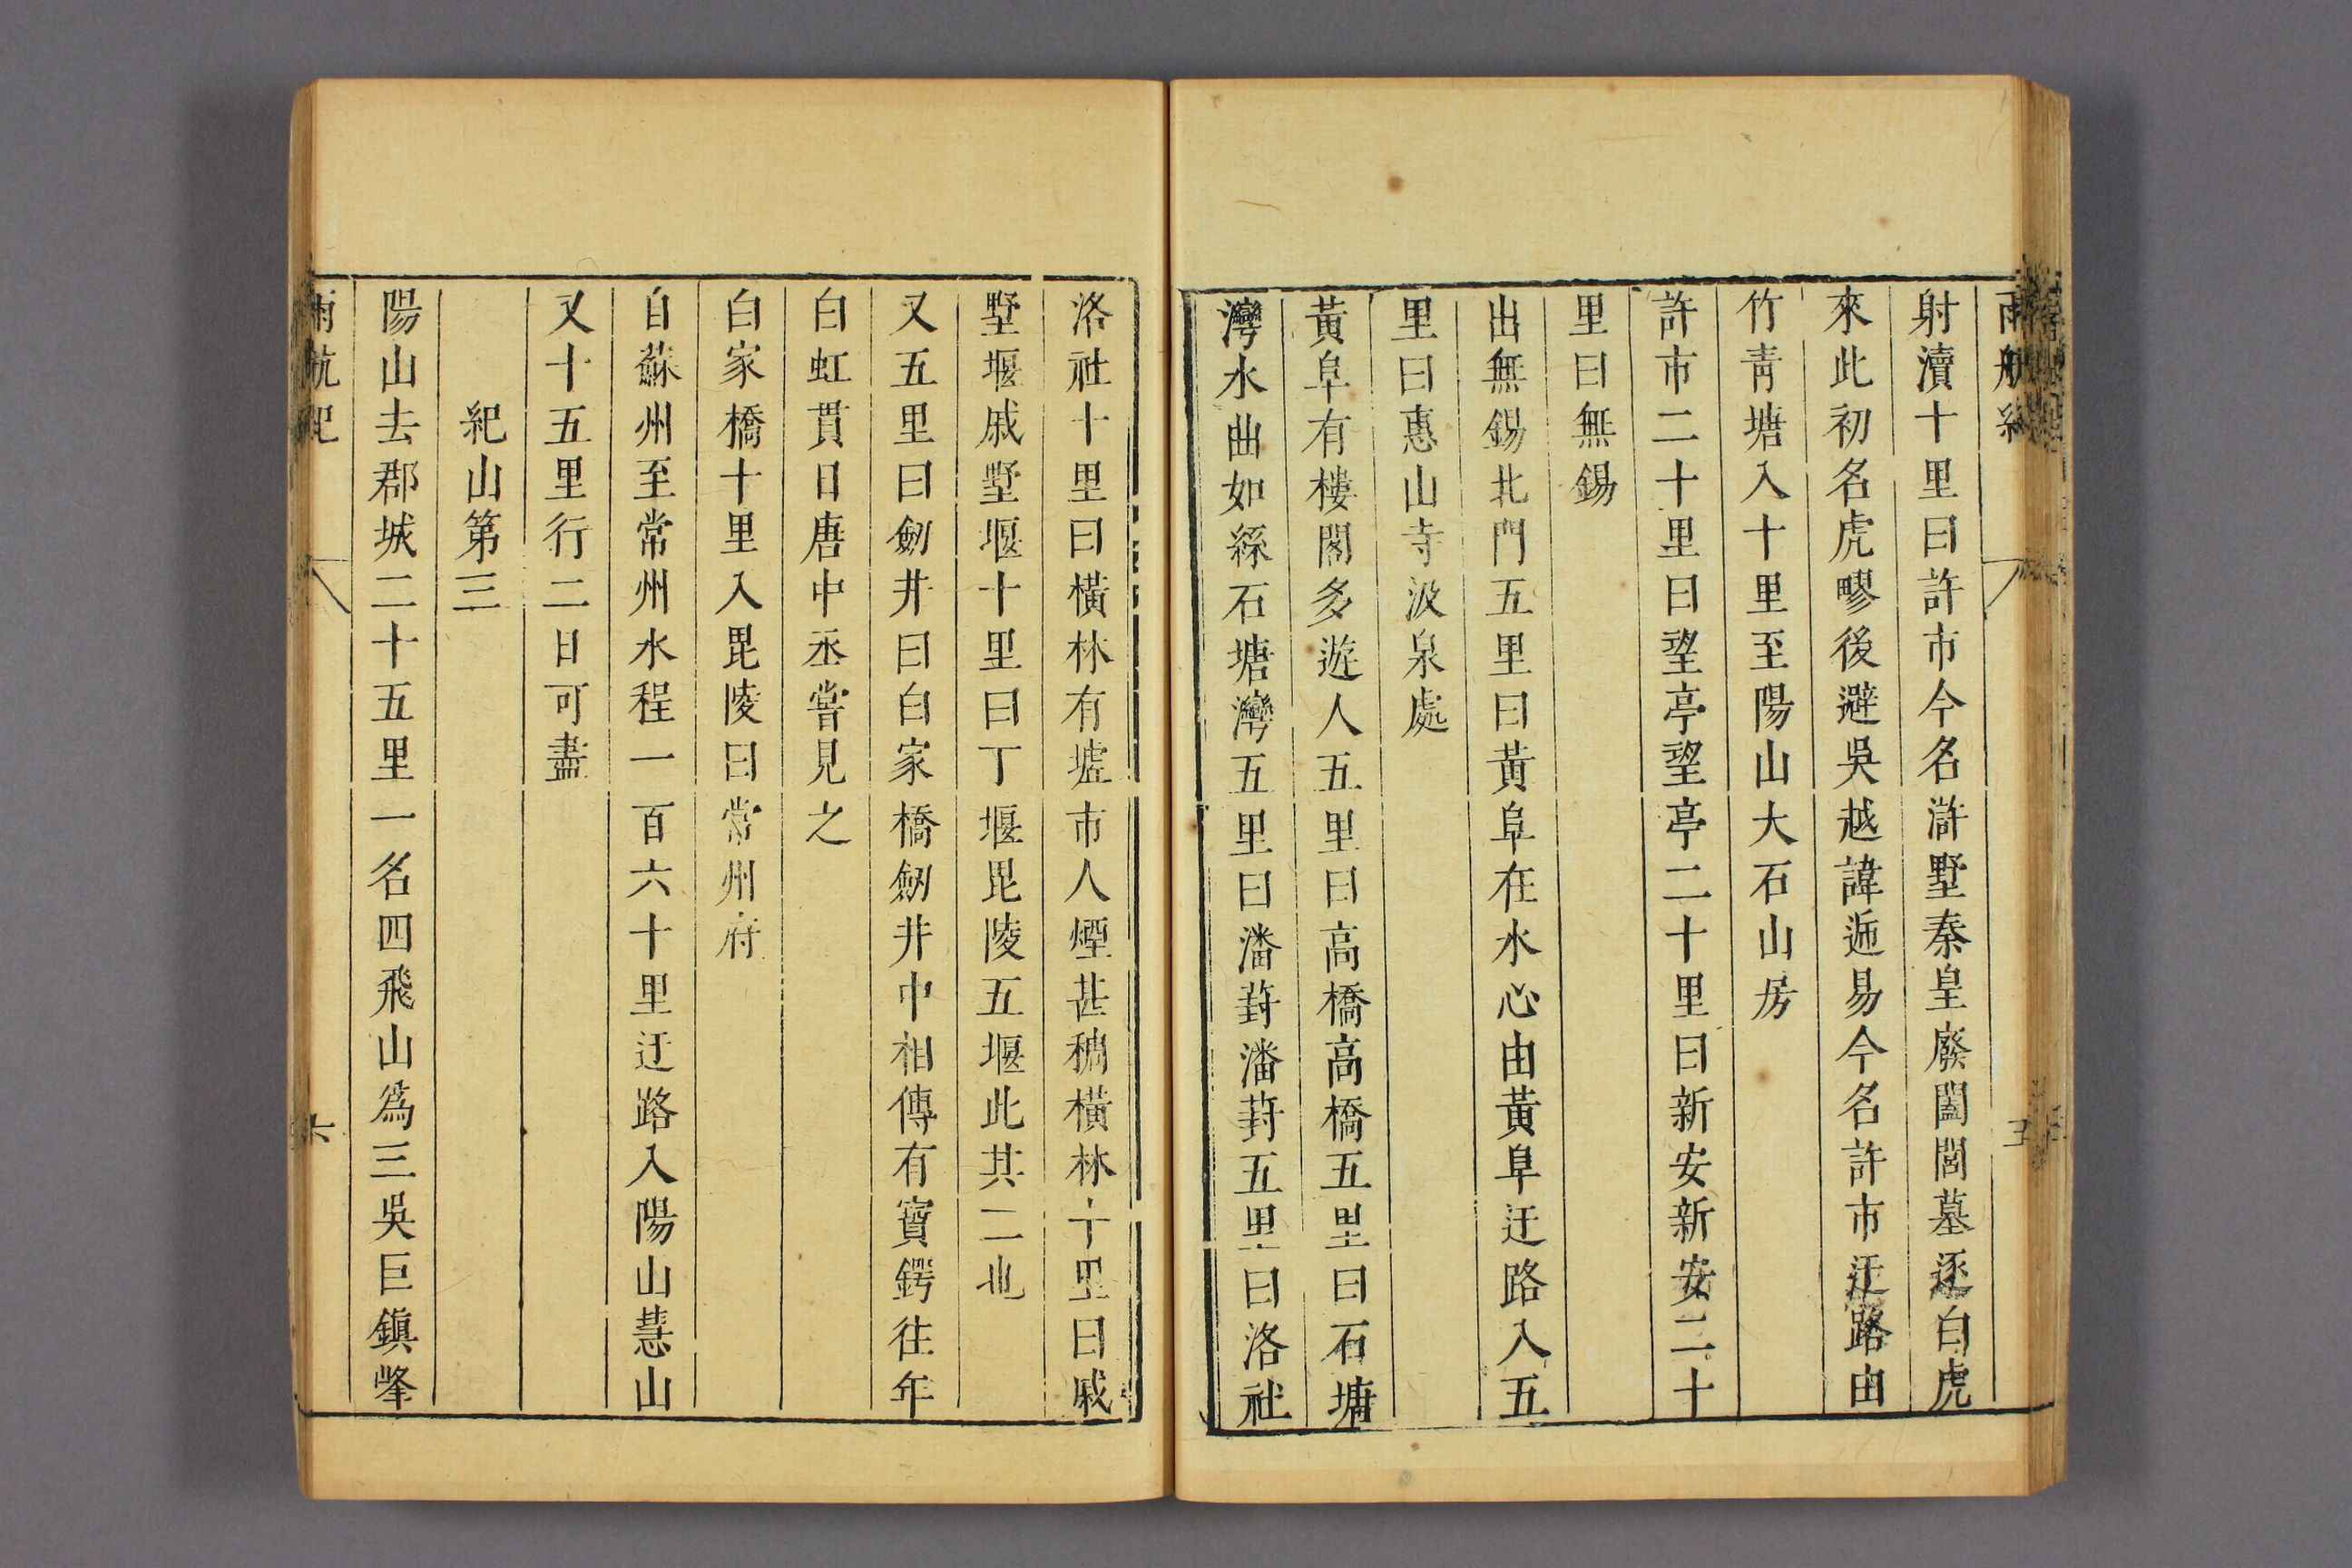 雨航紀
五
射瀆十里曰許市今名滸墅秦皇廢闔閭墓逐白虎
來此初名虎疁後避吳越諱遞易今名許市迂路由
竹青塘入十里至陽山大石山房
許市二十里曰望亭望亭二十里曰新安新安二十
里曰無錫
出無錫北門五里曰黃阜在水心由黃阜迂路入五
里曰惠山寺汲泉處
黃阜有樓閣多遊人五里曰高橋高橋五里曰石塘
灣水曲如綠石塘灣五里曰潘葑潘葑五里曰洛社
洛社十里曰橫林有墟市人煙甚稠橫林十里曰戚
墅堰戚墅堰十里曰丁堰毘陵五堰此其二也
又五里曰劒井曰白家橋劒井中相傳有寶鍔往年
白虹貫日唐中丞嘗見之
白家橋十里入毘陵曰常州府
自蘇州至常州水程一百六十里迂路入陽山慧山
又十五里行二日可盡
紀山第三
陽山去郡城二十五里一名四飛山爲三吳巨鎭峯
雨航紀
六